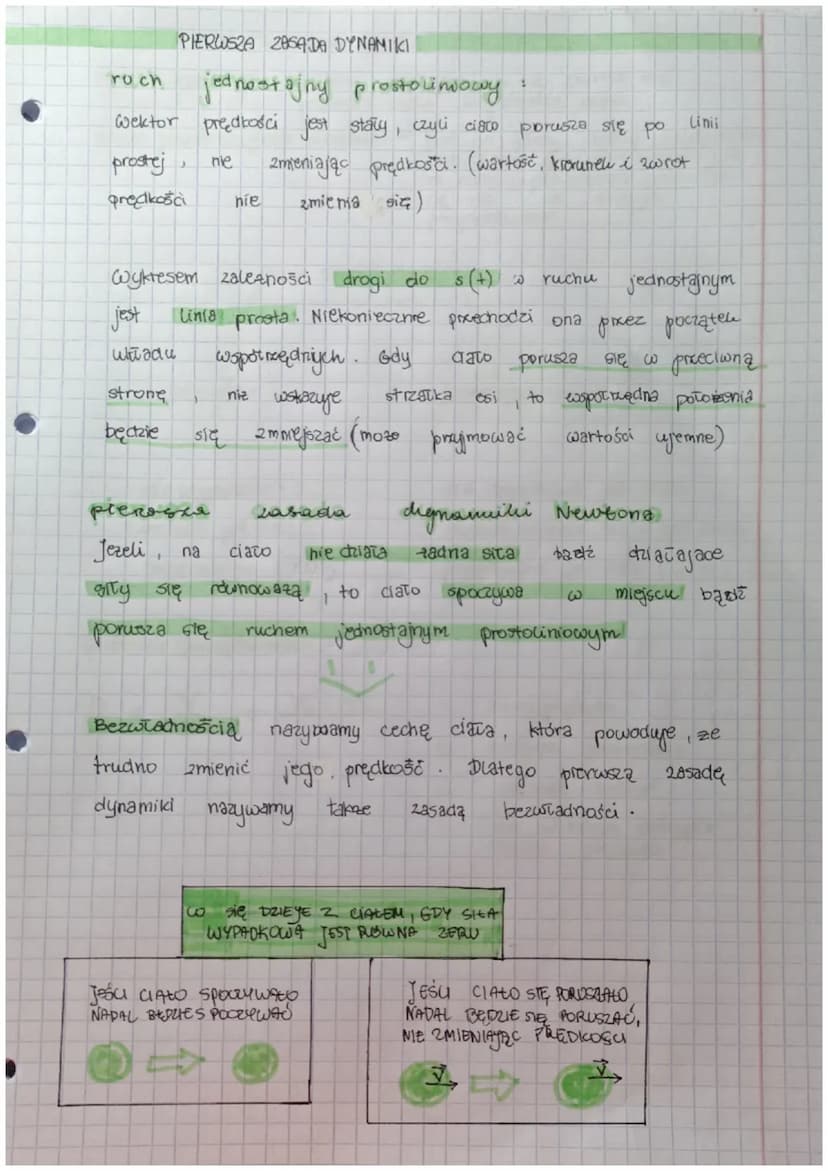 PIERWSZA ZASADA DYNAMIKI
ruch jednostajny prostoliniowy :
Wektor prędkości jest stały, czyli ciało porusza się po linii
prostej, nie zmieniając prędkości. (wartość, kierunek i zwrot
prędkości nie zmienia się)
Wykresem zależności drogi do s(t) w ruchu jednostajnym
jest linia prosta. Niekoniecznie przechodzi ona przez początek
układu współrzędnych. Gdy ciało porusza się w przeciwną
stronę, niż wskazuje strzałka osi, to współrzędna położenia
będzie się zmniejszać (może przyjmować wartości ujemne)
pierwsza zasada dynamiki Newtona
Jeżeli, na ciało nie działa żadna siła bądź działające
siły się równoważą, to ciało spoczywa w miejscu bądź
porusza się ruchem jednostajnym prostoliniowym
Bezwładnością nazywamy cechę ciała, która powoduje, że
trudno zmienić jego prędkość. Dlatego pierwszą zasadę
dynamiki nazywamy także zasadą bezwładności.
CO SIĘ DZIEJE Z CIAŁEM, GDY SIŁA
WYPADKOWA JEST RÓWNA ZERU
JEŚLI CIAŁO SPOCZYWAŁO
NADAL BĘDZIE SPOCZYWAĆ
JEŚLI CIAŁO SIĘ PORUSZAŁO,
NADAL BĘDZIE SIĘ PORUSZAĆ,
NIE ZMIENIAJĄC PRĘDKOŚCI
V V